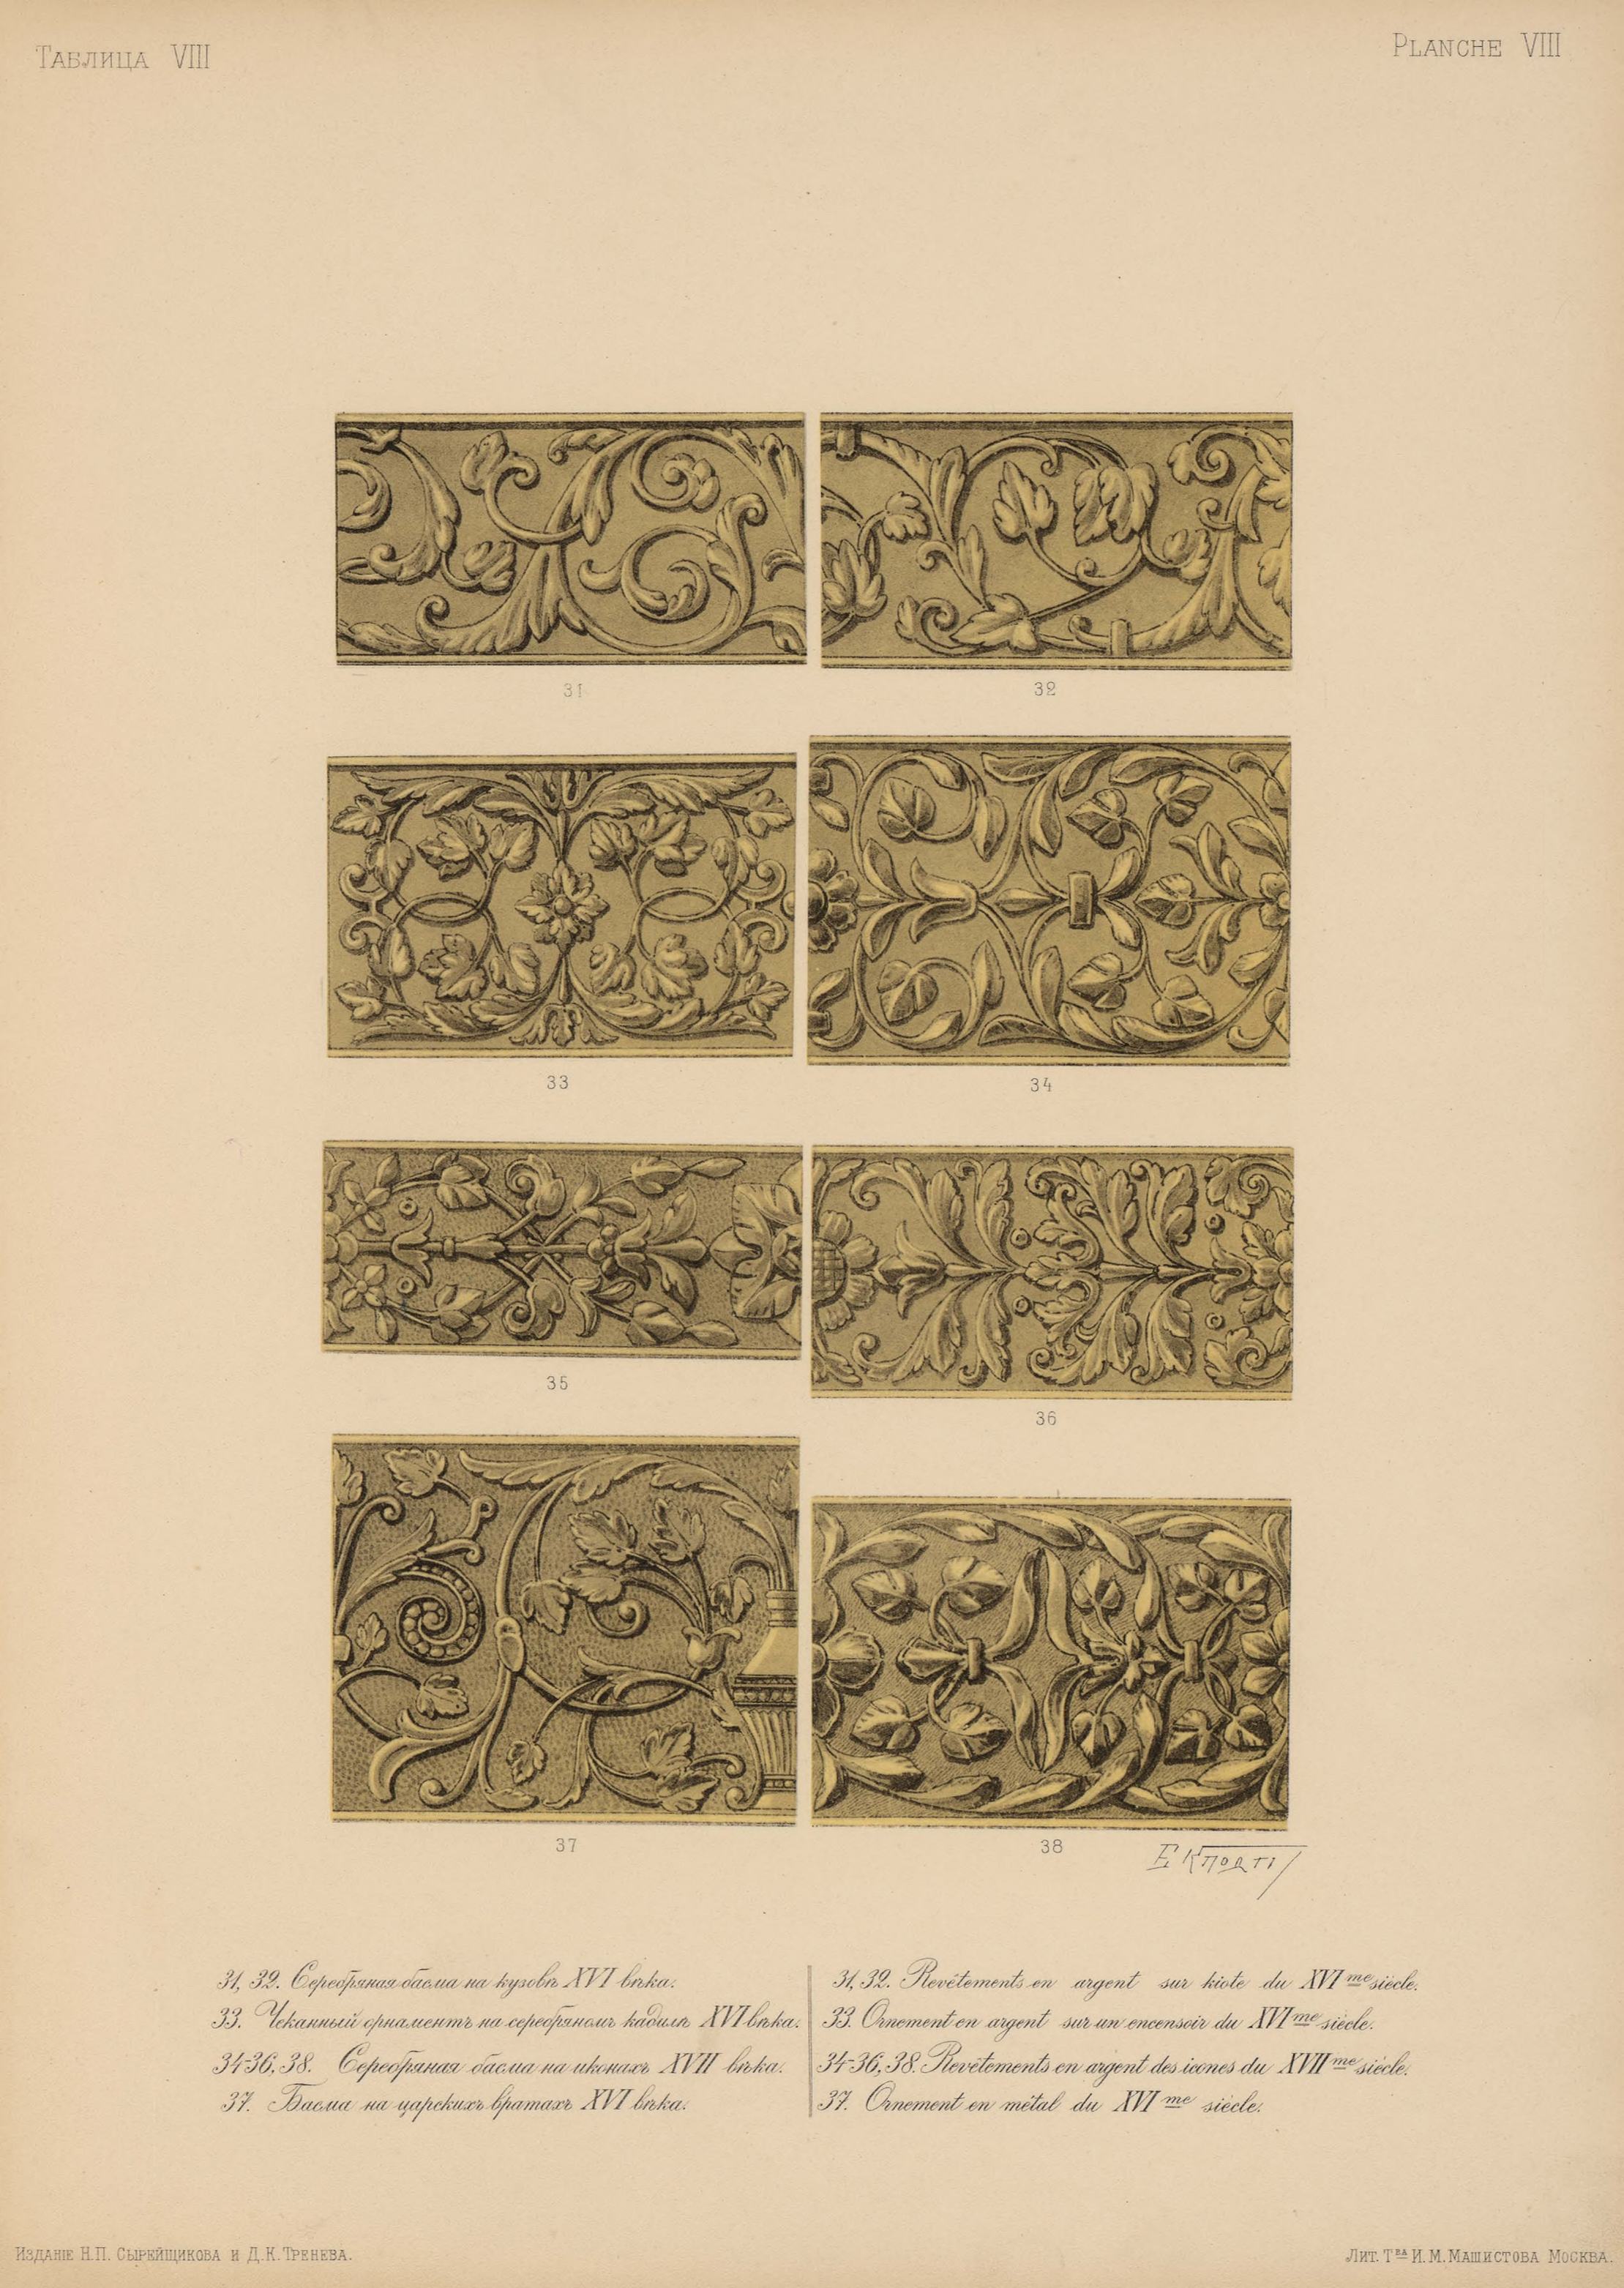 Таблица VIII
Planche VIII
31
32
33
34
35
36
37
38
31, 32. Серебряная басма на кузовѣ XVI вѣка.
33. Чеканный орнаментъ на серебряномъ кадилѣ XVI вѣка.
34-36, 38. Серебряная басма на иконахъ XVII вѣка.
37. Басма на царскихъ вратахъ XVI вѣка.
31, 32. Revêtements en argent sur kiote du XVI me siècle.
33. Ornement en argent sur un encensoir du XVI me siècle.
34-36, 38. Revêtements en argent des icones du XVII me siècle.
37. Ornement en métal du XVI me siècle.
Изданіе Н.П. Сырейщикова и Д.К. Тренева.
Лит. Тва И.М. Машистова Москва.